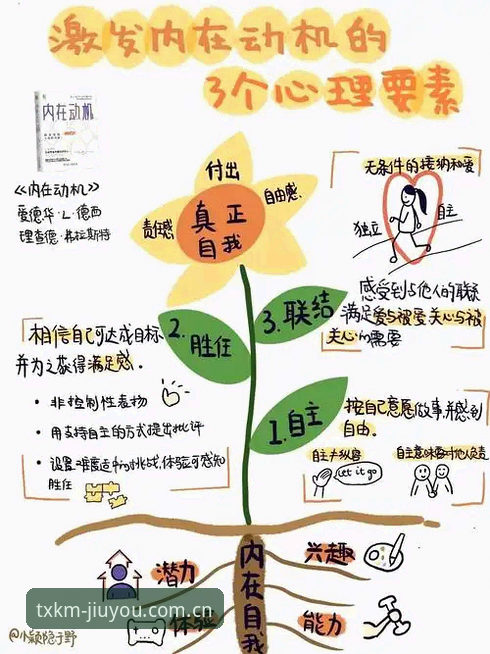 激发内在动机的
3个心理要素
内在动机
《内在动机》
爱德华·L·德西
理查德·弗拉斯特
付出
责任感
自由感
真正
自我
无条件的接纳和爱
独立
自主
3.联结
感受到与他人的联系
满足爱与被爱关心与被
关心的需要
2.
胜任
相信自己可达成目标
并为之获得满足感。
• 非控制性表扬
• 用支持自主的方式提出批评
• 设置难度适中的挑战,体验可感知
胜任
1.自主
按自己意愿做事,并感到
自由。
自主≠纵容
Let it go
自主意味要对他人负责
内在自我
潜力
兴趣
体验
能力
txkm-jiuyou.com.cn
@小颖隐于野